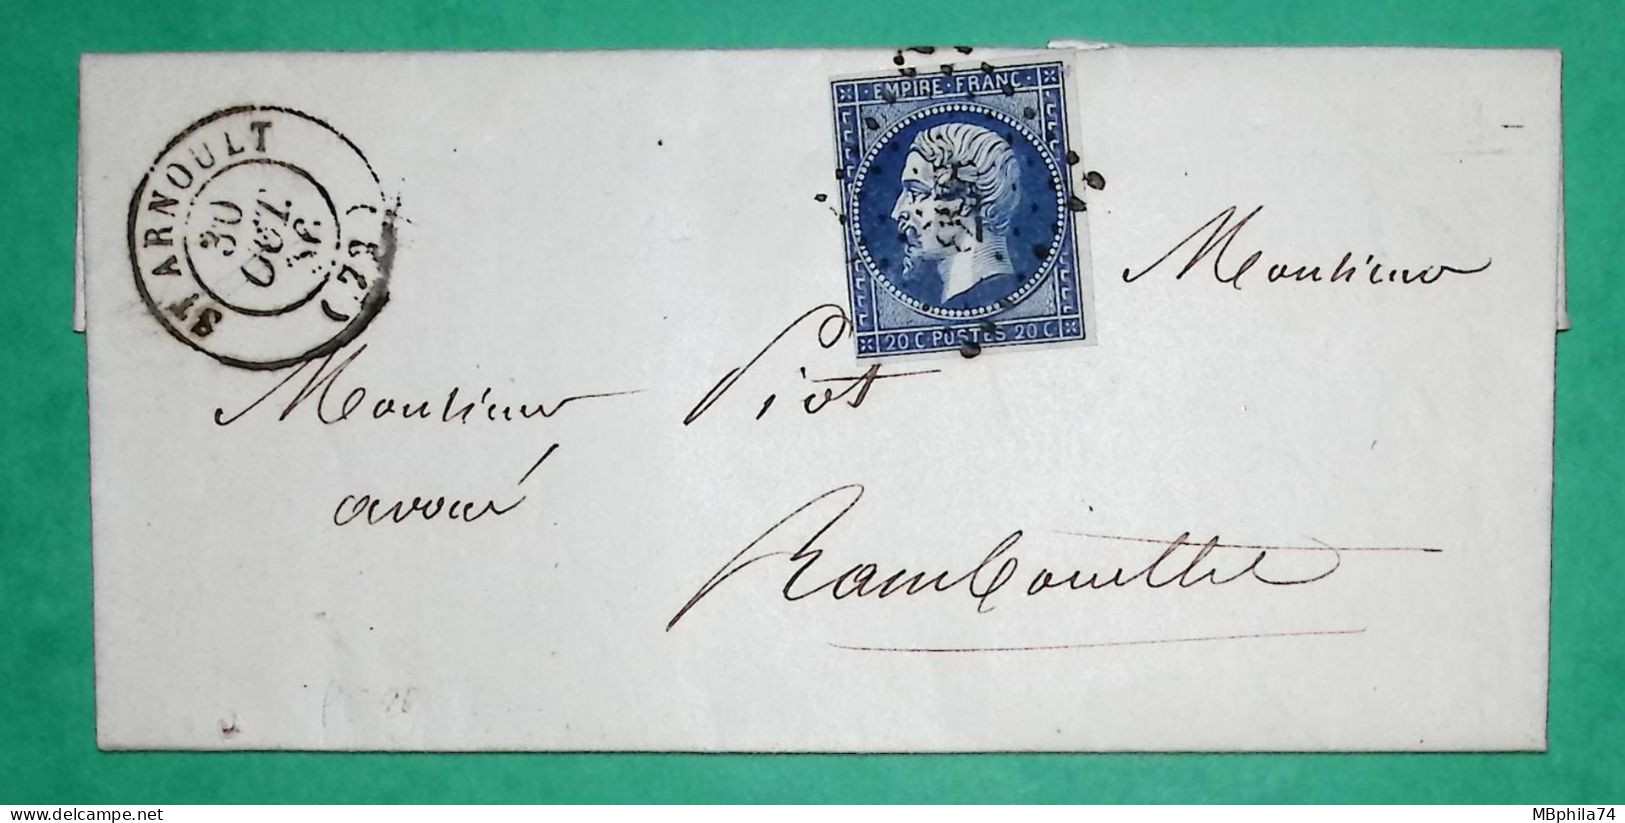 ST ARNOULT
30
OCT.
56
(73)
EMPIRE·FRANC·
20 C POSTES 20 C
Monsieur
Monsieur Piot
avoué
Rambouillet
MBphila74